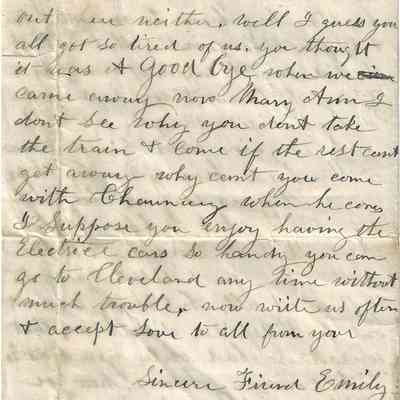 out here neither. well I guess you
all got so tired of us. you thought
it was A Good bye when we
came away now Mary Ann I
don't see why you dont take
the train & come if the rest cant
get away why cant you come
with Chauncey when he comes
I Suppose you enjoy having the
Electrice cars so handy you can
go to Cleveland any time without
much trouble, now write us often
& accept love to all from your
Sincere Friend Emily